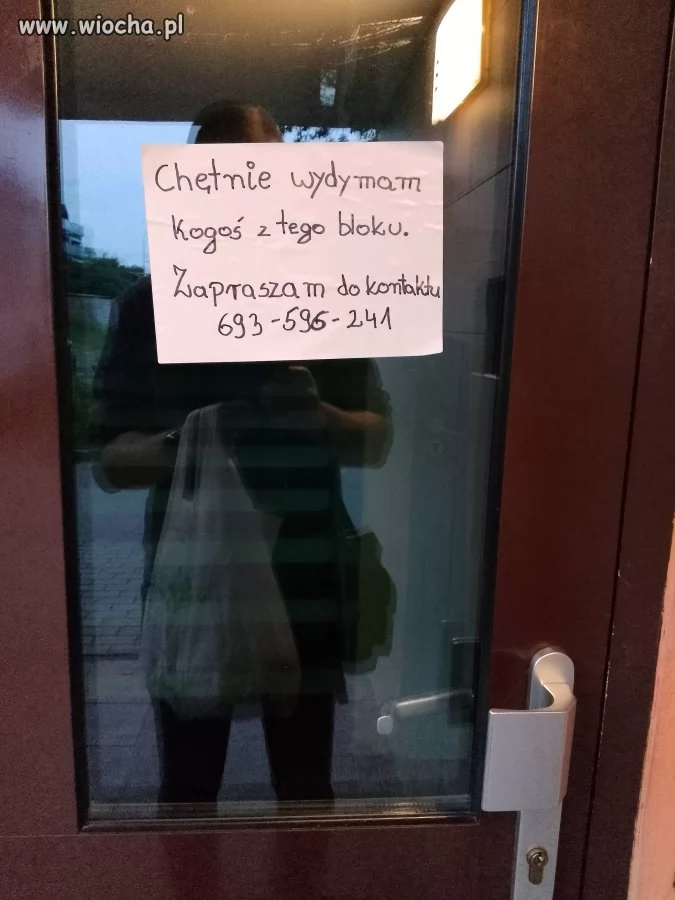 www.wiocha.pl
Chętnie wydymam
kogoś z tego bloku.
Zapraszam do kontaktu
693-596-241